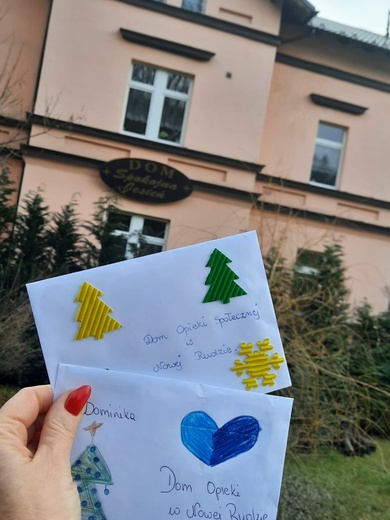 DOM
Spokojna
Jesień
Dom Opieki Społecznej
w
Nowej Rudzie
Dominika
Dom Opieki
w Nowej Rudzie